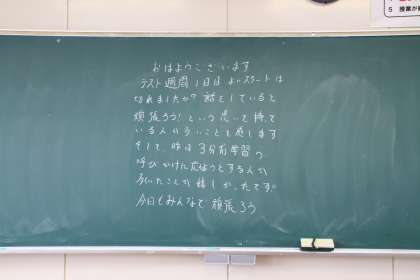 おはようございます
テスト週間1日目よいスタートは
切れましたか?話をしていると
頑張ろう!という思いを持って
いる人が多いことを感じます
そして、昨日3分前学習の
呼びかけに応ようとする人が
多いたことが嬉しかったです。
今日もみんなで頑張ろう
5 授業が